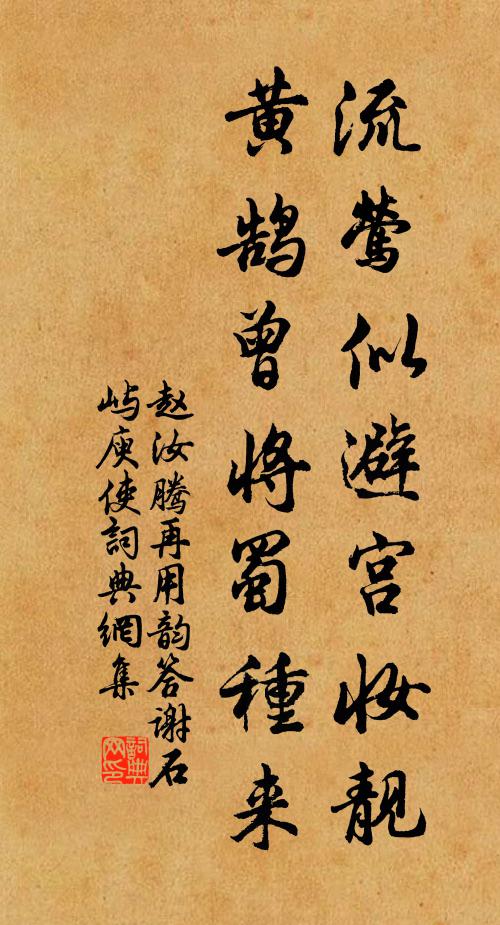 流莺似避宫妆靓
黄鹄曾将蜀種来
赵汝腾再用韵答谢石
屿庾使詞典網集
詞典网印